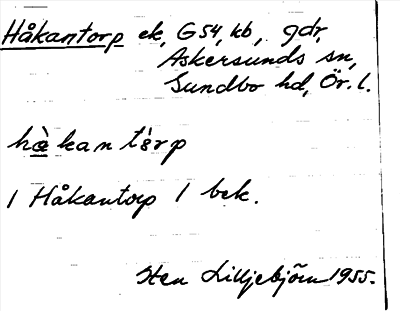 Håkantorp ek, G54, kb, gdr,
Askersunds sn,
Sundbo hd, Ör. l.
hàkan tårp
/ Håkantorp / bek.
Sten Lilljebjörn 1955.